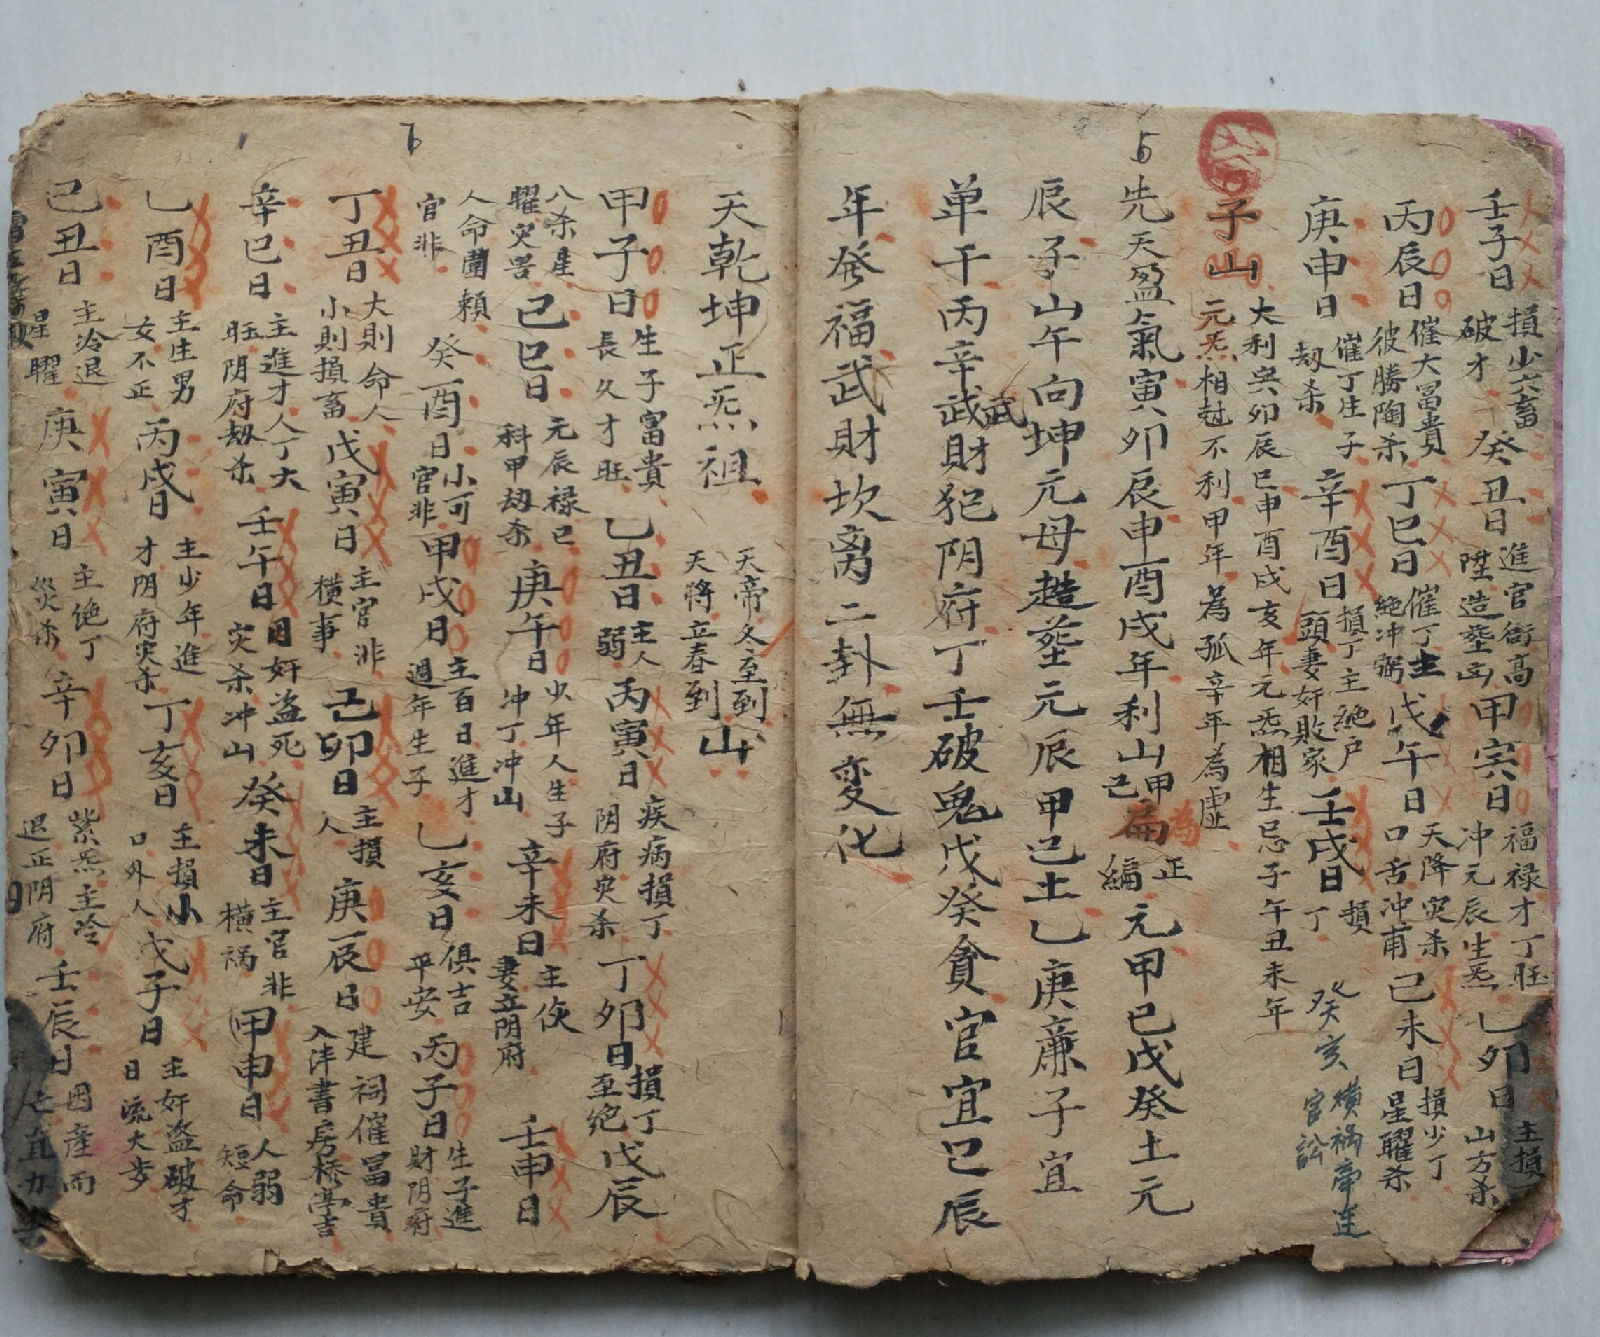 5
壬子日 損少六畜 破才 癸丑日 進官啇高 陞造塟凶 甲寅日 福禄才丁旺 冲元辰生炁 乙卯日 主損 山方杀
丙辰日 催大冨貴 彼勝陶杀 丁巳日 催丁主 絶冲弼 戊午日 天降灾杀 口舌冲甫 己未日 損少丁 星曜杀
庚申日 催丁生子 刼杀 辛酉日 損丁主絶户 頭妻奸敗家 壬戌日 損丁 癸亥 横祸帝连 官訟
子山 大利兴卯辰巳申酉戌亥年元炁相生忌子午丑未年
元炁相尅不利甲年為孤辛年為虚
先天盈氣寅卯辰申酉戌年利山 甲己 為 正 編 元甲巳戊癸土元
辰子山午向坤元母趮塟元辰甲己土乙庚亷子宜
单千丙辛武武財犯阴府丁壬破鬼戊癸貪官宜巳辰
年癸福武財坎离二卦無変化
6
天乾坤正炁祖 天帝冬至到 天將立春到 山
甲子日 生子富貴 長久才旺 乙丑日 主人弱 丙寅日 疾病損丁 阴府灾杀 丁卯日 損丁 至絶 戊辰
八杀産 曜灾害 己巳日 元辰禄己 科甲刼杀 庚午日 少年人生子 冲丁冲山 辛未日 主伤 妻立阴府 壬申日
人命圕賴 官非 癸酉日 小可官非 甲戌日 主百日進才 週年生子 乙亥日 俱吉 平安 丙子日 生子進 財阴府
丁丑日 大則命人 小則損畜 戊寅日 主官非 横事 己卯日 主損人 庚辰日 建祠催冨貴 入泮書房桥亭吉
辛巳日 主進才人丁大 旺阴府刼杀 壬午日 日奸盗死 灾杀冲山 癸未日 主官非 横祸 甲申日 人弱 短命
乙酉日 主生男 女不正 丙戌日 主少年進 才阴府灾杀 丁亥日 主損小 口外人 戊子日 主奸盗破才 日流大步
己丑日 主冷退 星曜 庚寅日 主绝丁 災杀 辛卯日 紫炁主冷 退正阴府 壬辰日 因産而